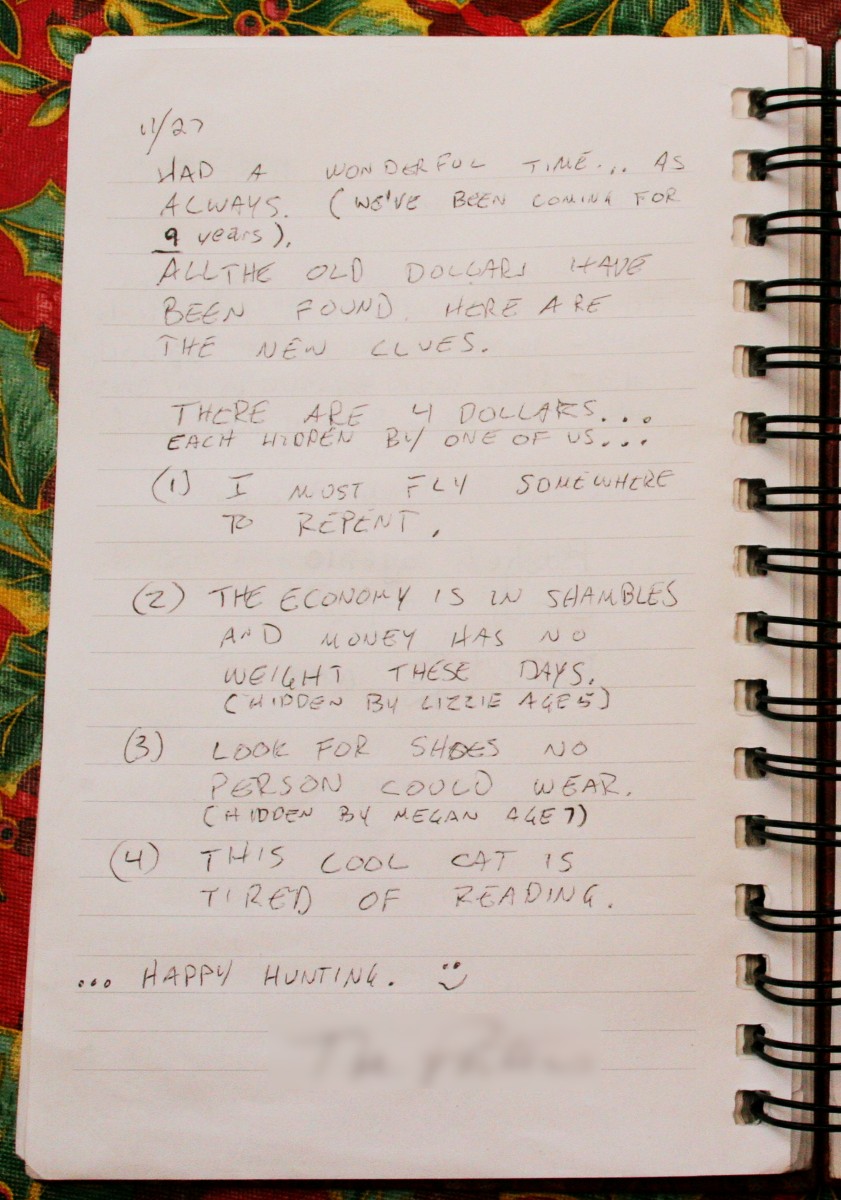 11/27
HAD A WONDERFUL TIME... AS
ALWAYS. (WE'VE BEEN COMING FOR
9 years).
ALL THE OLD DOLLARS HAVE
BEEN FOUND. HERE ARE
THE NEW CLUES.
THERE ARE 4 DOLLARS...
EACH HIDDEN BY ONE OF US...
(1) I MUST FLY SOMEWHERE
TO REPENT.
(2) THE ECONOMY IS IN SHAMBLES
AND MONEY HAS NO
WEIGHT THESE DAYS.
(HIDDEN BY LIZZIE AGE 5)
(3) LOOK FOR SHOES NO
PERSON COULD WEAR.
(HIDDEN BY MEGAN AGE 7)
(4) THIS COOL CAT IS
TIRED OF READING.
... HAPPY HUNTING.